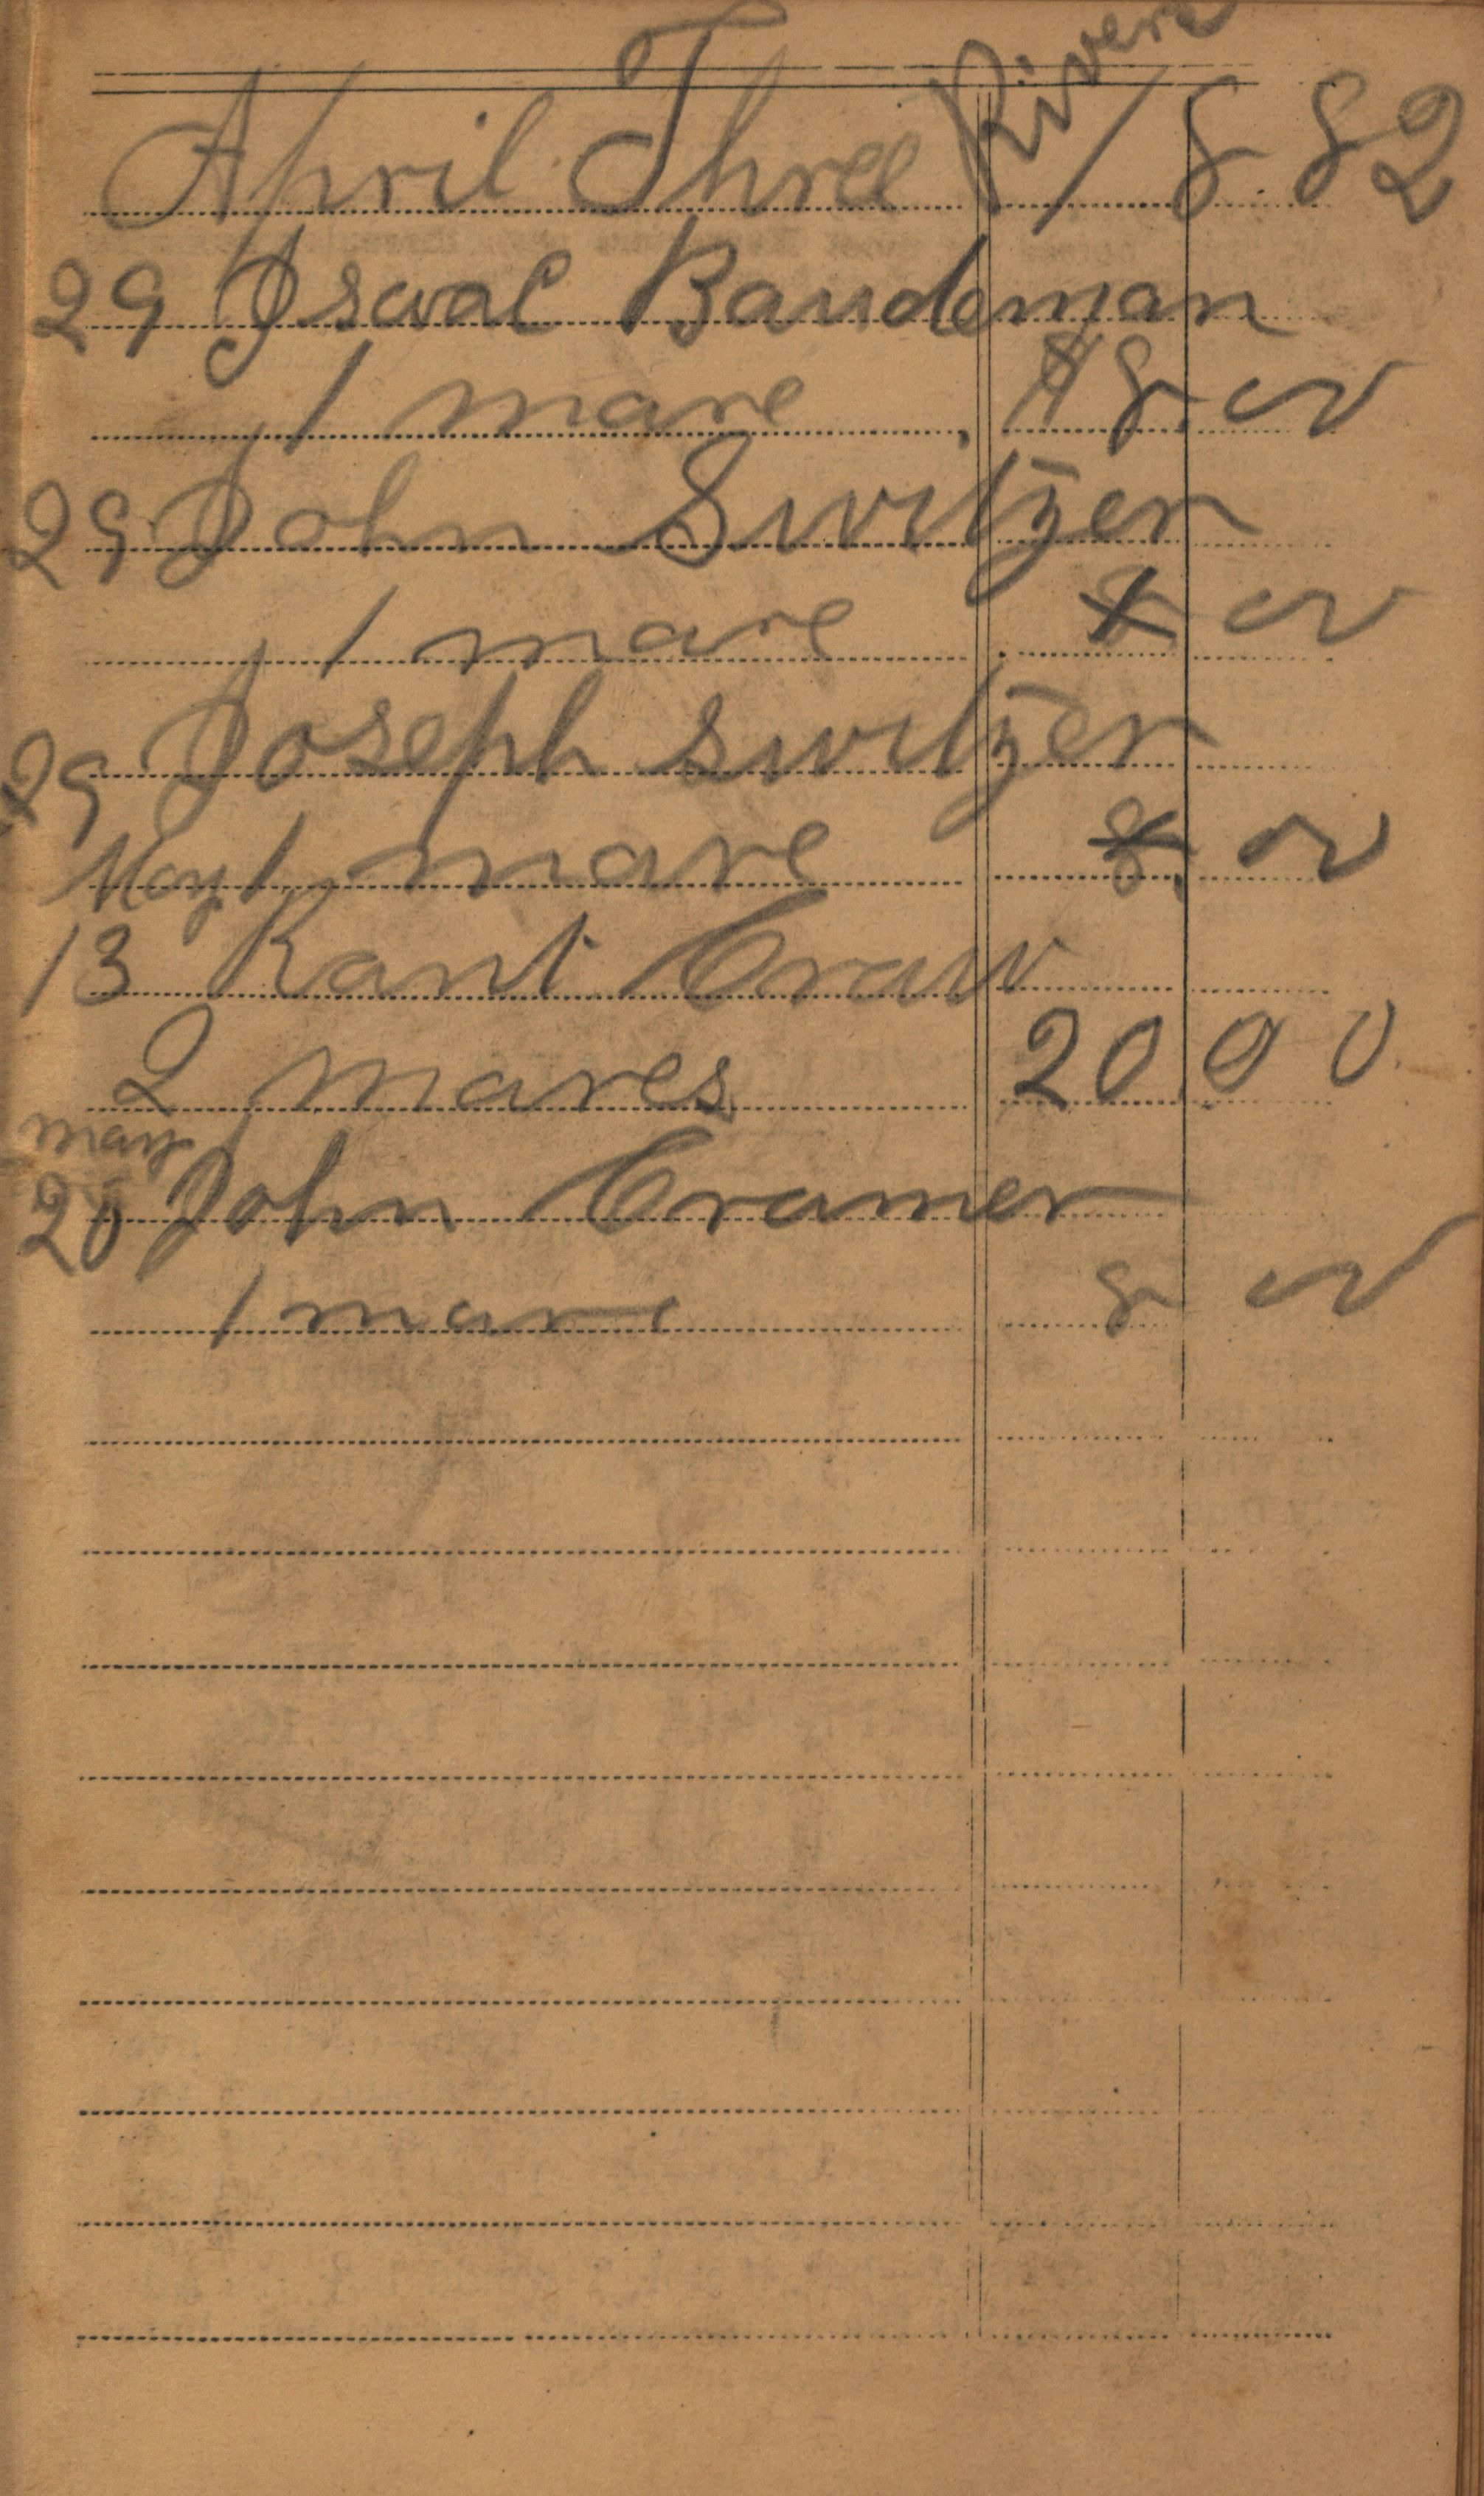 April Three Rivers 1882
29 Isral Bandeman
1 mare 8 00
29 John Switzer
1 mare 8 00
29 Joseph Switzer
May 1 mare 8 00
13 Kant Craw
2 mares 20 00
may
28 John Cramer
1 mare 8 00